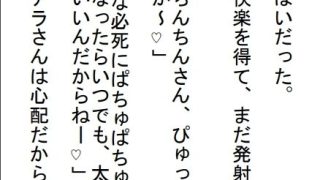 ぱいだった。
快楽を得て、まだ発射
ちんちんさん、ぴゅっ
が～♡」
な必死にぱちゅぱちゅ
なったらいつでも、太
いいんだからねー♡」
テラさんは心配だから